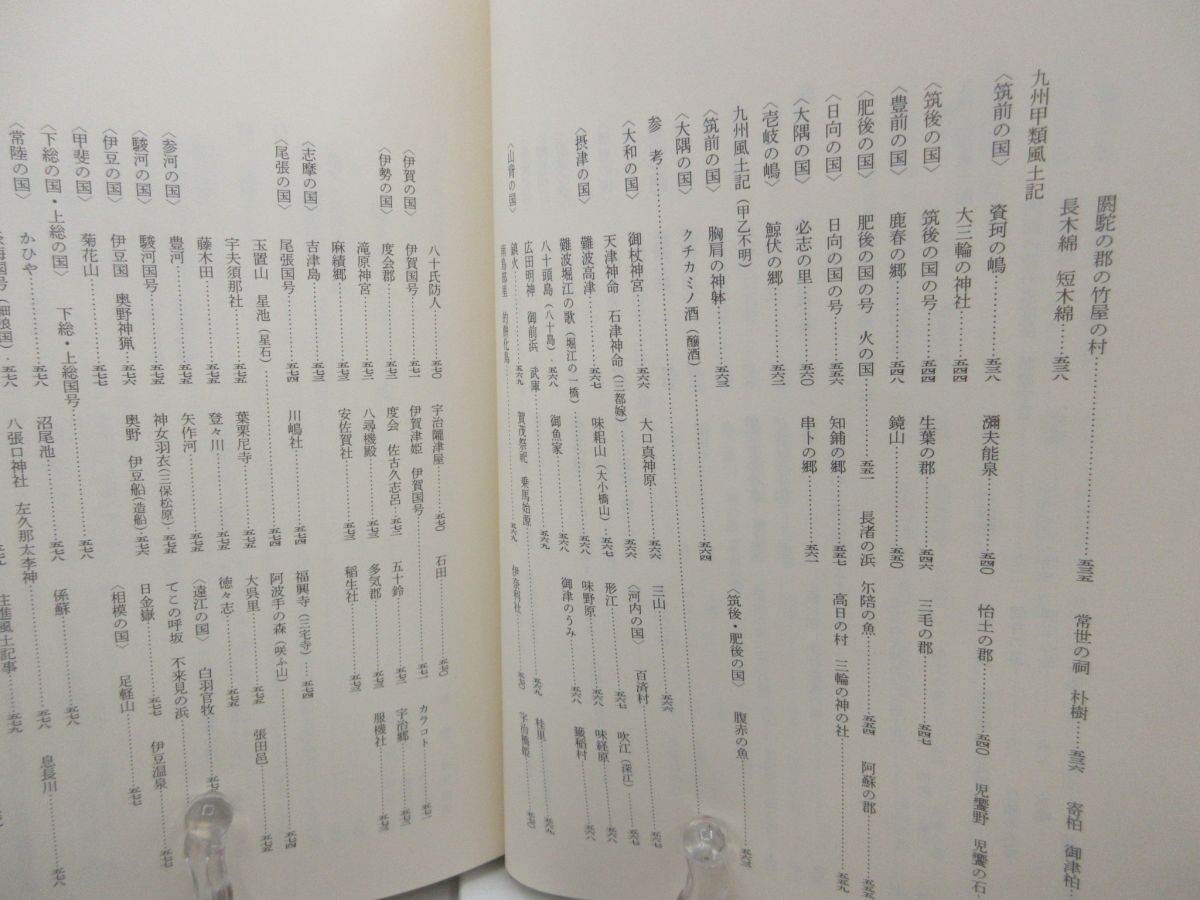 閼駝の郡の竹屋の村……五三五　常世の祠　朴樹……五三六　寄柏　御津柏……
長木綿　短木綿……五三八
九州甲類風土記
〈筑前の国〉　資珂の嶋……五三八　彌夫能泉……五四〇　怡土の郡……五四〇　児饗野　児饗の石
大三輪の神社……五四四
〈筑後の国〉　筑後の国の号……五四四　生葉の郡……五四六　三毛の郡……五四七
〈豊前の国〉　鹿春の郷……五四八　鏡山……五五〇
〈肥後の国〉　肥後の国の号　火の国……五五一　長渚の浜　尓陪の魚……五五四　阿蘇の郡……五五五
〈日向の国〉　日向の国の号……五五六　知鋪の郷……五五七　高日の村　三輪の神の社……五五九
〈大隅の国〉　必志の里……五六〇　串卜の郷……五六一
〈壱岐の嶋〉　鯨伏の郷……五六二
九州風土記（甲乙不明）
〈筑前の国〉　胸肩の神躰……五六三　〈筑後・肥後の国〉　腹赤の魚……五六三
〈大隅の国〉　クチカミノ酒（醸酒）……五六四
参　考……
〈大和の国〉　御杖神宮……五六六　大口真神原……五六六　三山……五六六
天津神命　石津神命（三都嫁）……五六六　〈河内の国〉　百済村……五六七
〈摂津の国〉　難波高津……五六七　味耜山（大小橋山）……五六七　形江……五六七　吹江（深江）……五六七
難波堀江の歌（堀江の一橋）……五六八　味野原……五六八　味経原……五六八
八十頭島（八十島）……五六八　御魚家……五六八　御津のうみ……五六八　籤稲村……五六八
広田明神　御前浜　武庫……五六九　桂里……五六九
〈山背の国〉　鎮火……五六九　賀茂祭祀　乗馬始源……五六九　伊奈利社……五七〇　宇治橋姫……五七〇
八十氏防人……五七〇　宇治隴津屋……五七〇　石田……五七〇
〈伊賀の国〉　伊賀国号……五七一　伊賀津姫　伊賀国号……五七一　カラコト……五七一
〈伊勢の国〉　度会郡……五七二　度会　佐古久志呂……五七二　五十鈴……五七二　宇治郷……五七二
滝原神宮……五七二　八尋機殿……五七三　多気郡……五七三　服機社……五七三
麻績郷……五七三　安佐賀社……五七三　稲生社……五七三
〈志摩の国〉　吉津島……五七三
〈尾張の国〉　尾張国号……五七四　川嶋社……五七四　福興寺（三宅寺）……五七四
玉置山　星池（星石）……五七四　阿波手の森（咲ふ山）……五七四
宇夫須那社……五七五　葉栗尼寺……五七五　大呉里……五七五　張田邑……五七五
藤木田……五七五　登々川……五七五　徳々志……五七五
〈参河の国〉　豊河……五七五　矢作河……五七五　〈遠江の国〉　白羽官牧……五七五
〈駿河の国〉　駿河国号……五七五　神女羽衣（三保松原）……五七五　てこの呼坂　不来見の浜……五七七
〈伊豆の国〉　伊豆国　奥野神猟……五七六　奥野　伊豆船（造船）……五七六　日金嶽……五七七　伊豆温泉……五七七
〈甲斐の国〉　菊花山……五七七　〈相模の国〉　足軽山……五七七
〈下総の国・上総の国〉　下総・上総国号……五七八
〈常陸の国〉　かひや……五七八　沼尾池……五七八　係蘇……五七八　息長川……五七八
八張口神社　左久那太李神……五七九